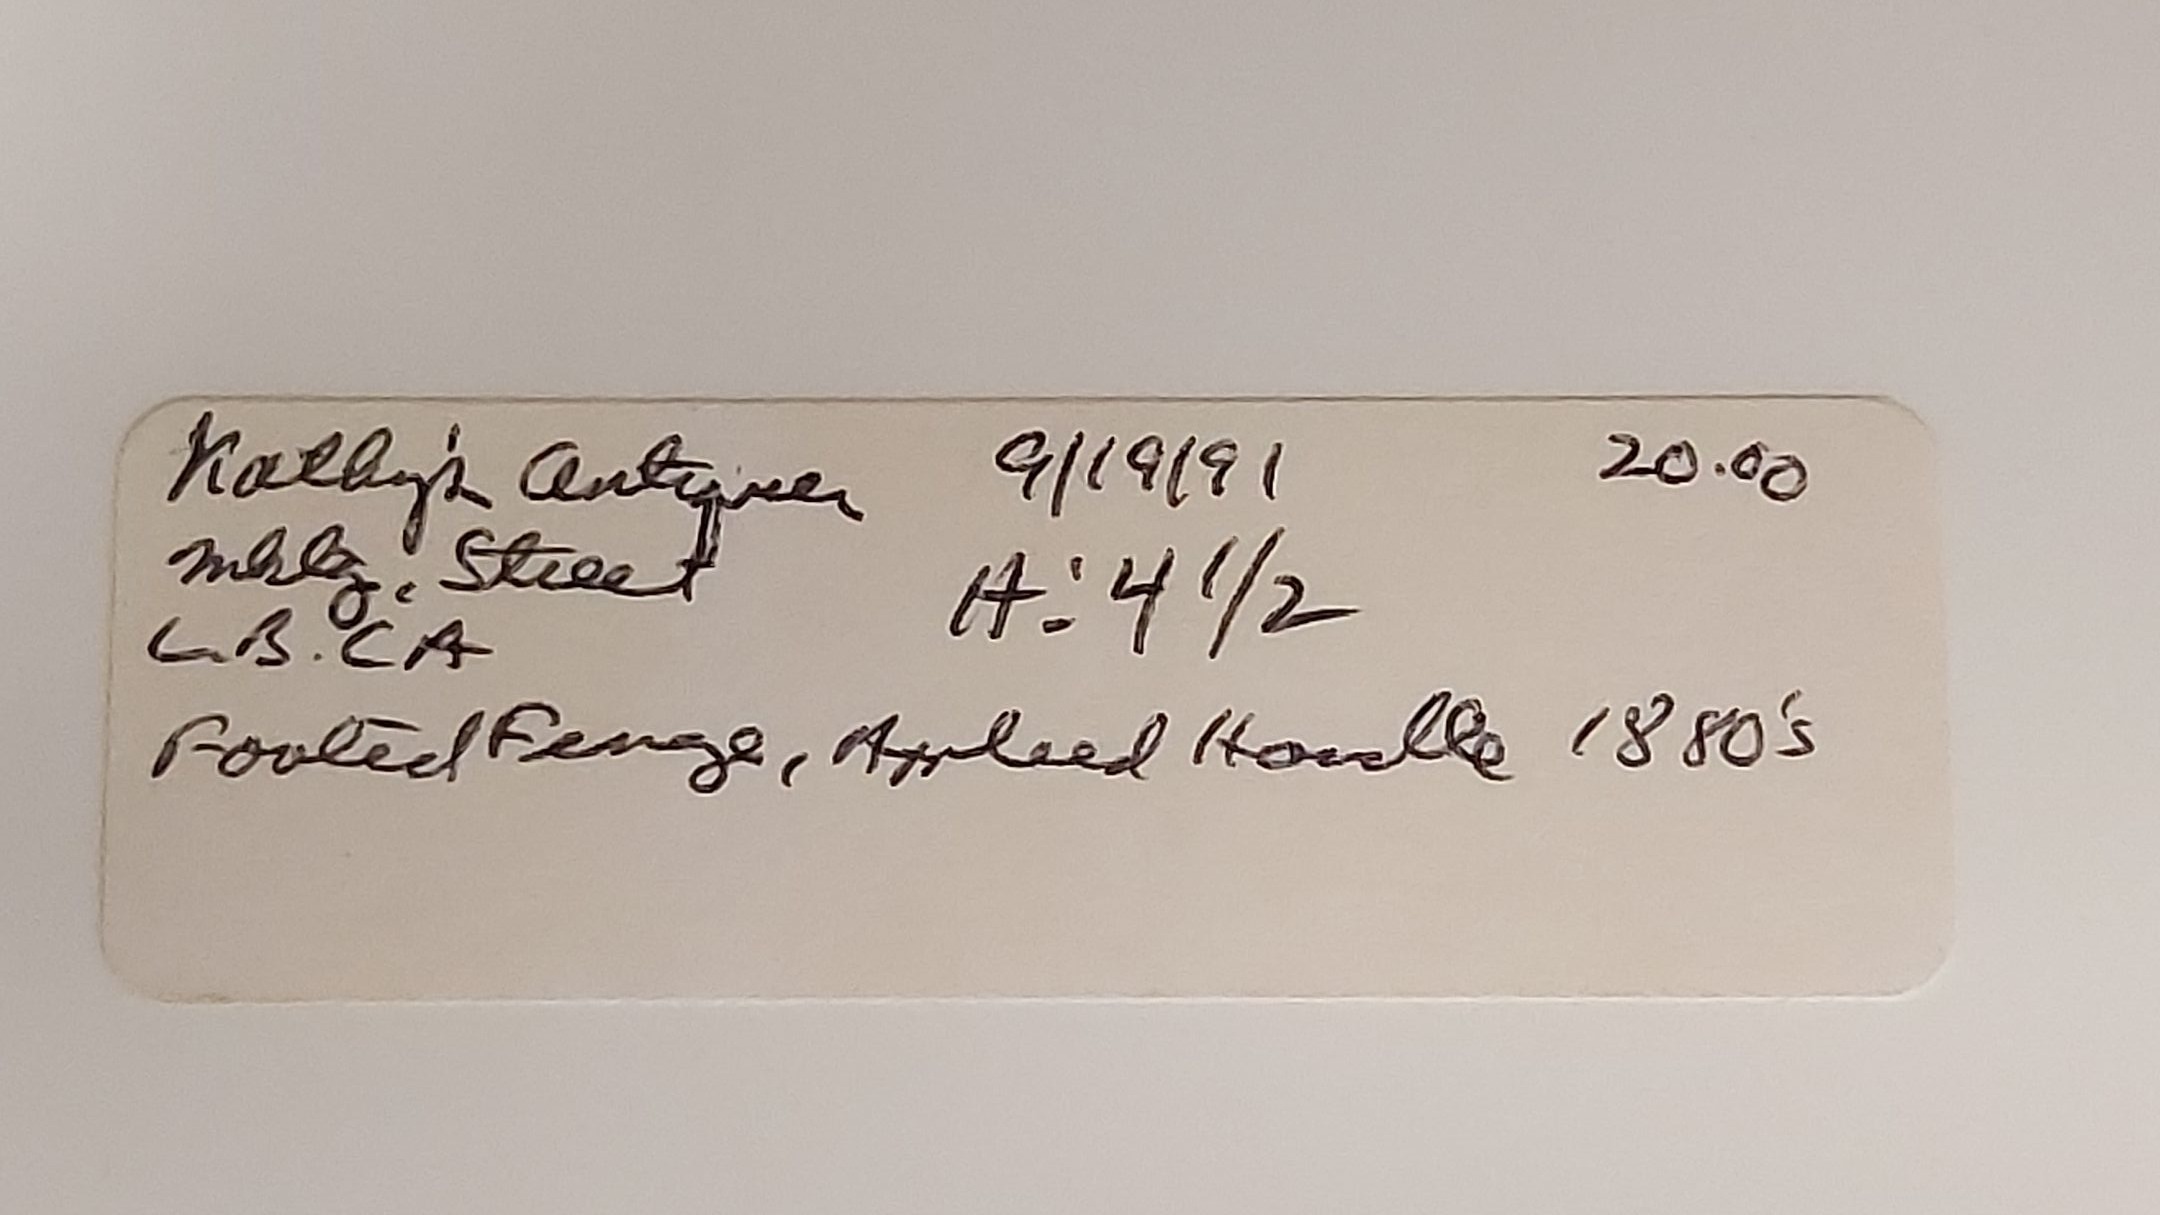 Kathy's Antiques 9/19/91 20.00
Street H: 4 1/2
L.B. CA
Footed Applied Handle 1880's